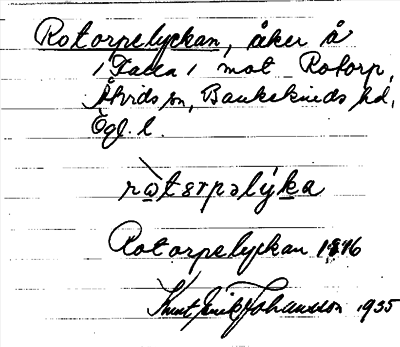 Rotorpelyckan, åker å
/Falla/ mot Rotorp,
Åtvids sn, Bankekinds hd,
Ögl. l.
rὼtərpəlýka
Rotorpelyckan 1846
Knut Erik Johansson 1935